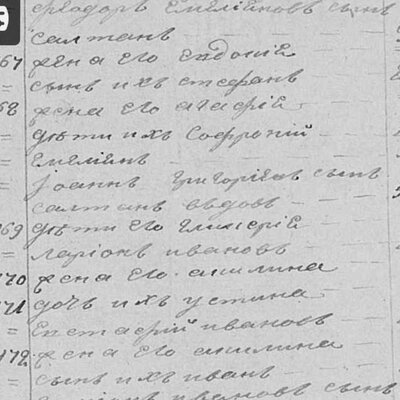 Ѳеодоръ Емелїановъ сынъ
салтанъ
67 жена его Евдокїй
сынъ ихъ стефанъ
68 жена его агафїй
= дѣти ихъ Софронїй
= Емелїанъ
Іоаннъ Григорїевъ сынъ
салтанъ вдовъ
69 дѣти его гликерїй
= ларїонъ ивановъ
170 жена его акилина
171 дочь ихъ устина
= Евстафїй ивановъ
172 жена его акилина
= сынъ ихъ иванъ
ивановъ сынъ